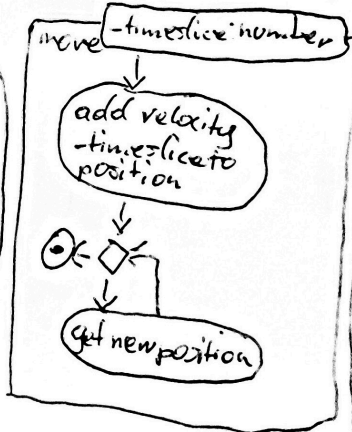 -timeslice:number
move
add velocity
-timeslice to
position
get new position